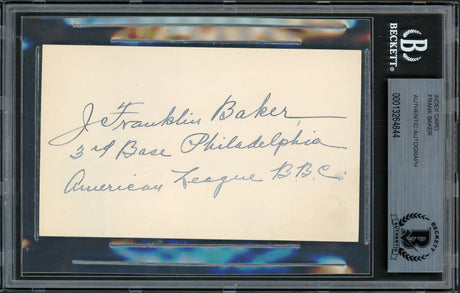 J. Franklin Baker
3rd Base Philadelphia
American League B.B.C.
BECKETT
INDEX CARD
FRANK BAKER
AUTHENTIC AUTOGRAPH
00013264844
BECKETT
AUTHENTIC